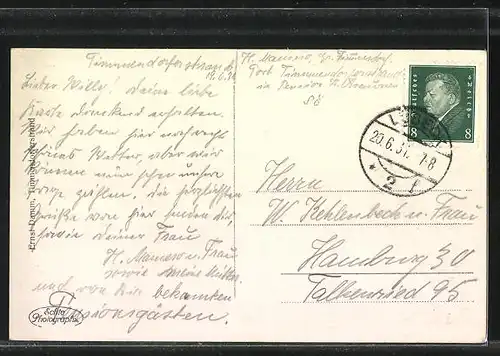 Timmendorferstrand
19.6.31
Lieber Willy! Deine liebe
Karte dankend erhalten.
Wir haben hier noch recht
schönes Wetter, aber wir
können
Tage zählen. Die herzlichsten
Grüße von hier senden dir,
sowie deiner Frau
H. Mamero u. Frau
sowie meine Mutter
und von hier bekannten
Pensionsgästen.
H. Mamero, Gr. Timmendorf
Post Timmendorferstrand
in Pension
Deutsches Reich
8 8
20.6.31. 7-8
* 2 f
Herrn
W. Kehlenbeck u. Frau
Hamburg 30
Falkenried 95
Ernst Damm, Timmendorferstrand
Echte
Photographie